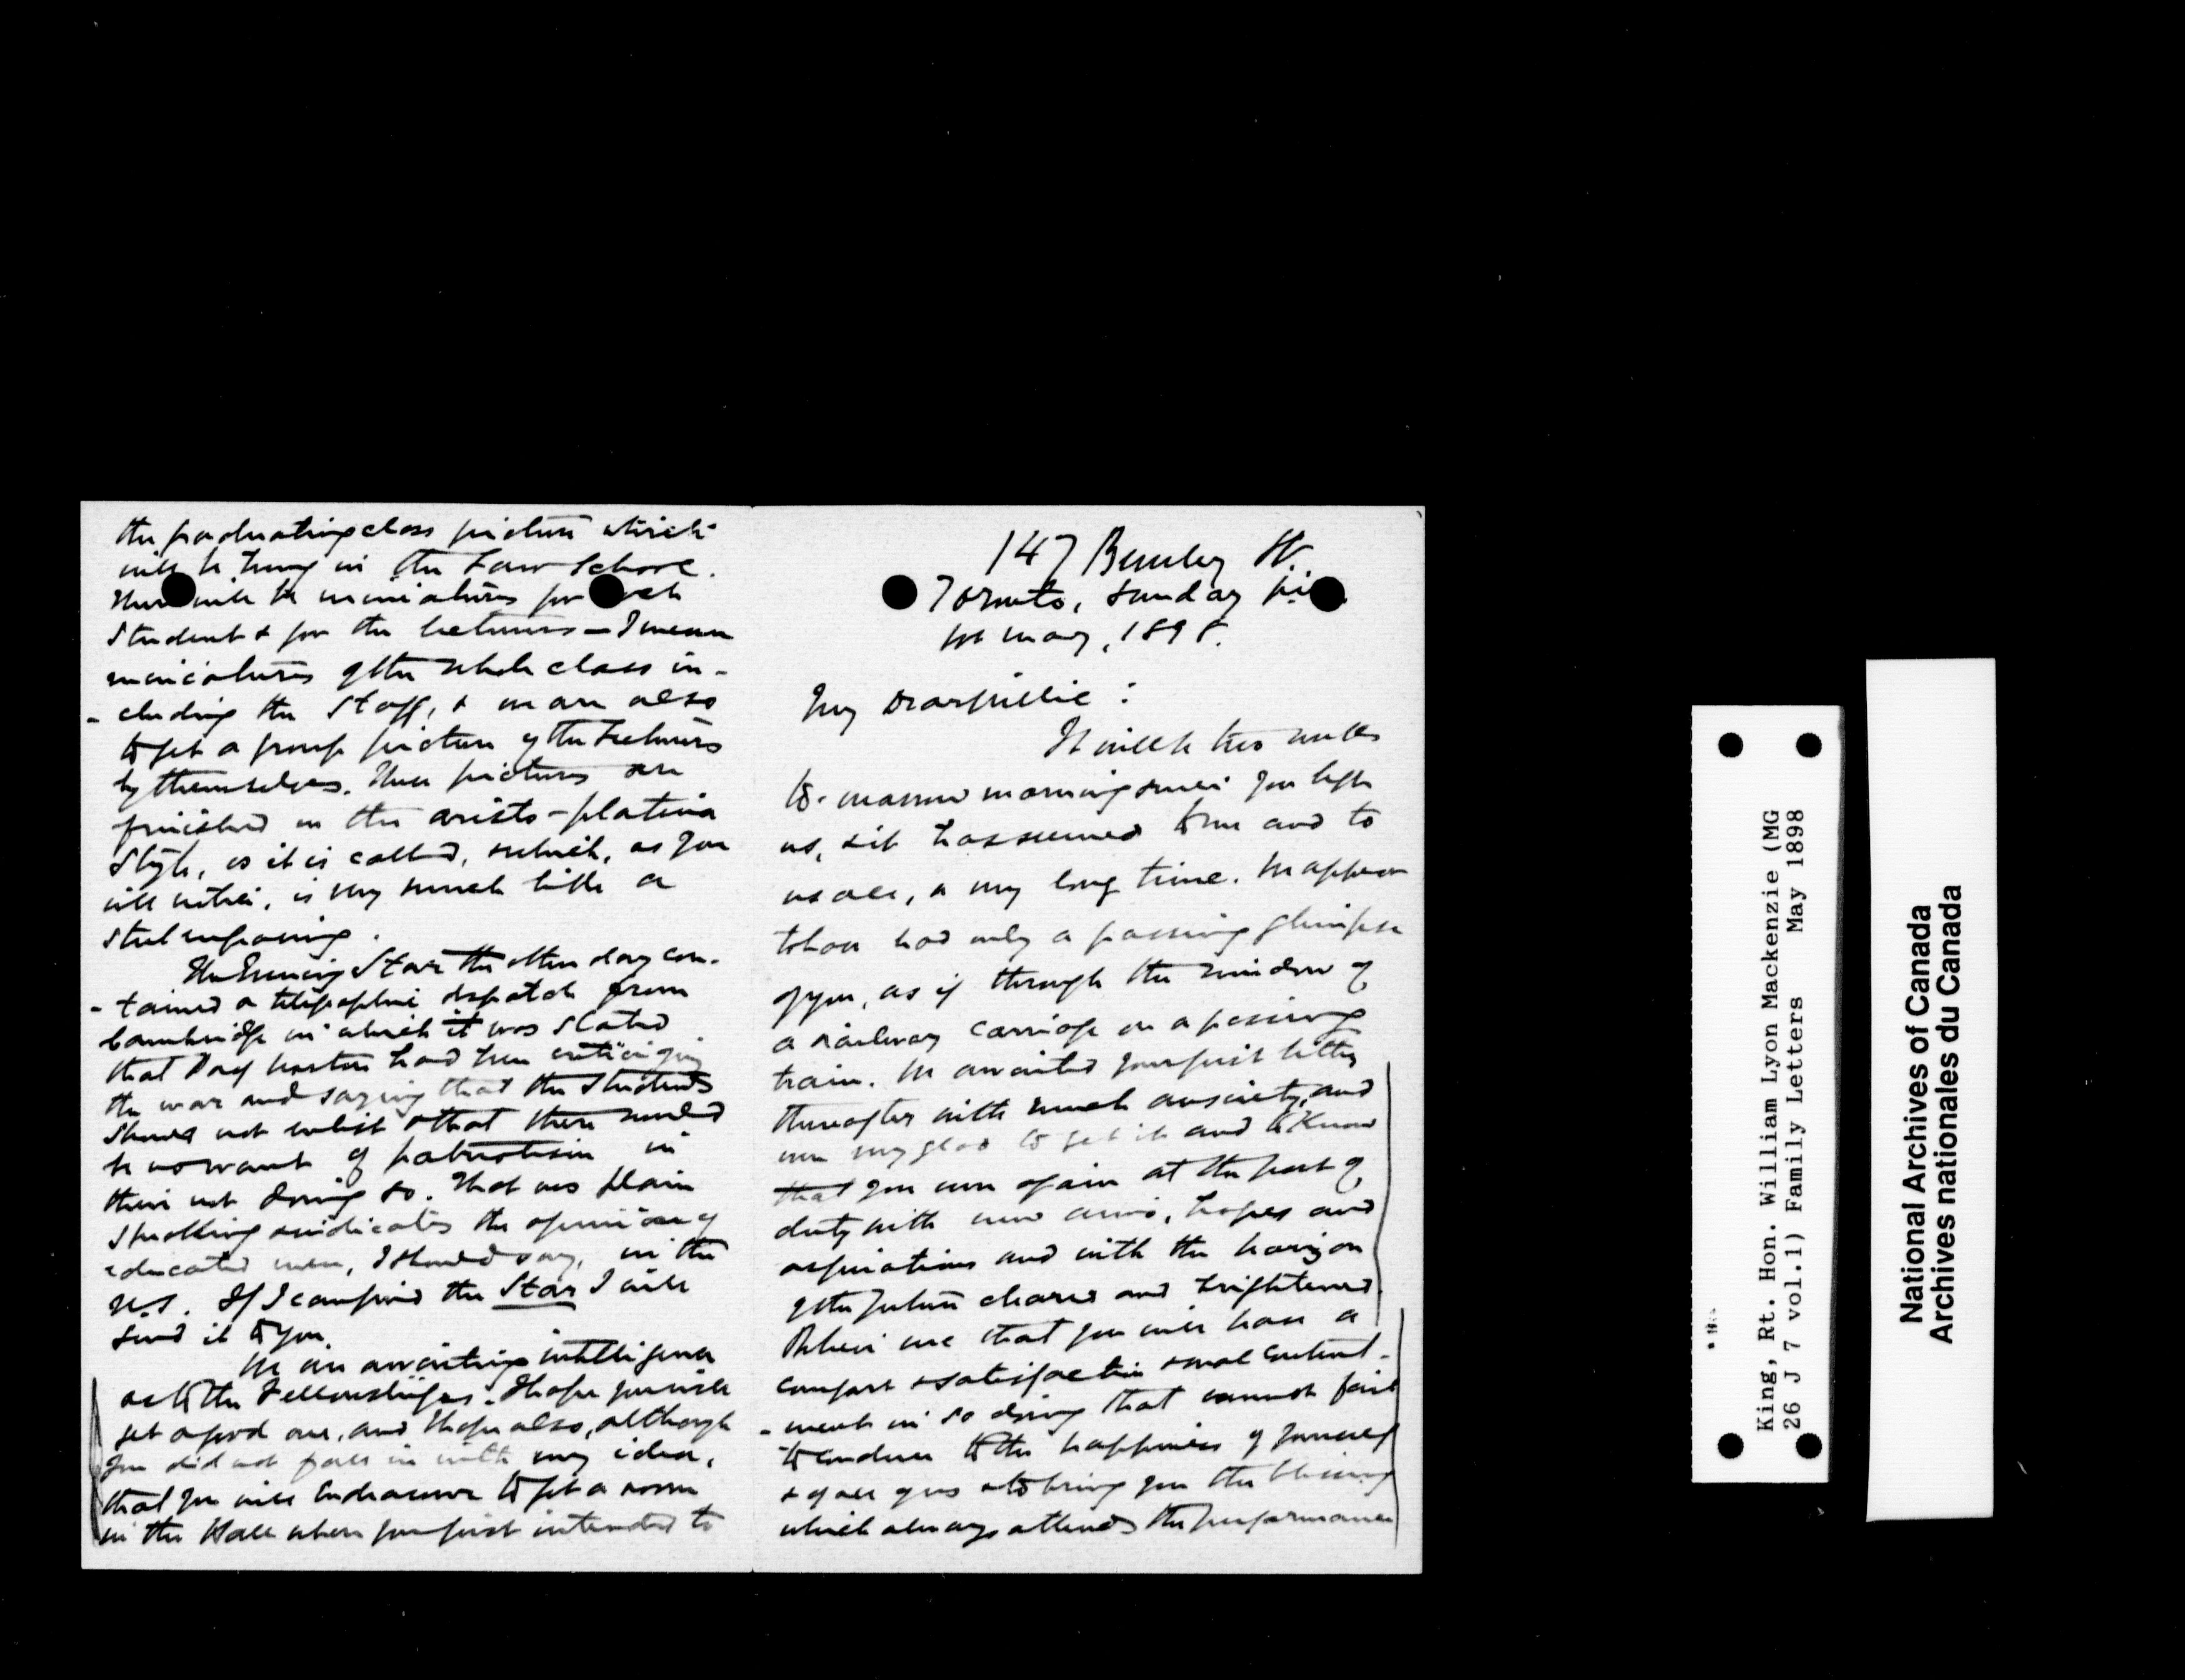 the graduating class picture which
will be hung in the Law School.
There will be miniatures for each
student & for the lecturers — I mean
miniatures of the whole class in-
- cluding the Staff, & we are also
to get a group picture of the Lecturers
by themselves. These pictures are
finished in the aristo-platina
Style, as it is called, which, as you
will notice, is very much like a
steel engraving.
The Evening Star the other day con-
- tained a telegraphic despatch from
Cambridge in which it was stated
that Prof Norton had been criticizing
the war and saying that the students
should not enlist & that there would
be no want of patriotism in
their not doing so. That was plain
speaking & indicates the opinion of
educated men, I should say, in the
U.S. If I can find the Star I will
send it to you.
We are awaiting intelligence
as to the Fellowships. I hope you will
get a good one, and I hope also, although
you did not fall in with my idea,
that you will endeavour to get a room
in the Hall where you first intended to
147 Beverley St.
Toronto, Sunday
1st May, 1898.
My dear Willie:
It will be two weeks
to-morrow morning since you left
us, & it has seemed to me and to
us all, a very long time. We appear
to have had only a passing glimpse
of you, as if through the window of
a railway carriage on a passing
train. We awaited your first letter
thereafter with much anxiety, and
were very glad to get it and to know
that you were again at the post of
duty with new aims, hopes and
aspirations and with the horizon
of the future cleared and brightened.
Believe me that you will have a
comfort & satisfaction & real content-
- ment in so doing that cannot fail
to conduce to the happiness of yourself
& of all of us & to bring you the blessing
which always attends the performance
King, Rt. Hon. William Lyon Mackenzie (MG
26 J 7 vol.1) Family Letters May 1898
National Archives of Canada
Archives nationales du Canada